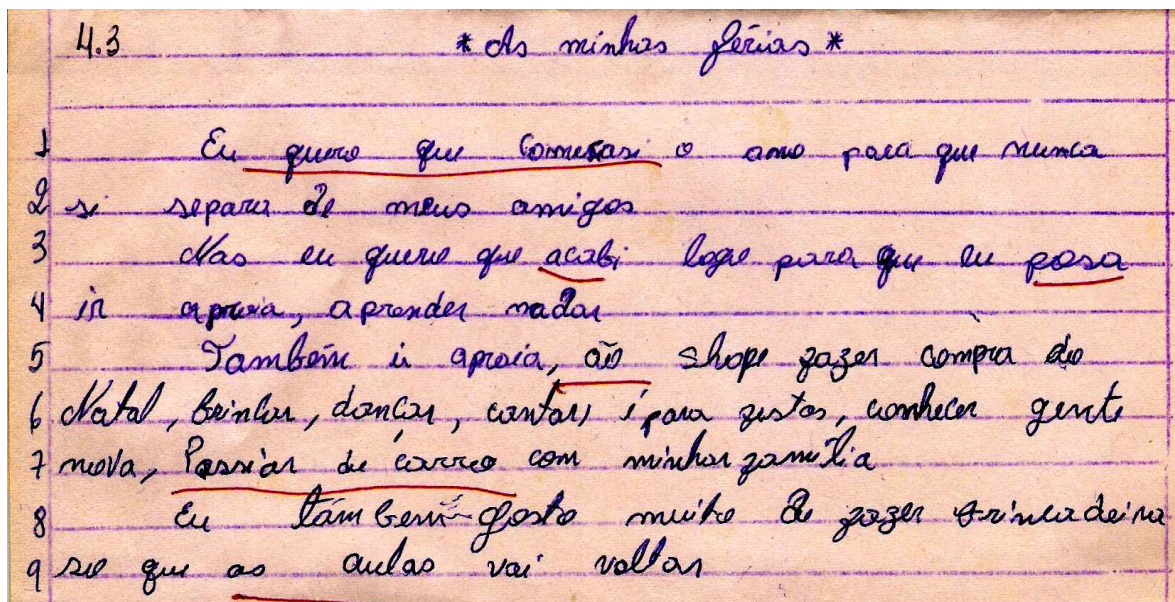 4.3 * As minhas férias *
1 Eu quero que comesasi o ano para que nunca
2 si separa de meus amigos
3 Mas eu quero que acabi logo para que eu posa
4 ir apraia, aprender nadar
5 Também ir apraia, ão shope fazer compra do
6 Natal, brincar, dançar, cantar, i para festas, conhecer gente
7 nova, Passiar de carro com minhas família
8 Eu também gosto muito de fazer brincadeira
9 so que as aulas vai voltar